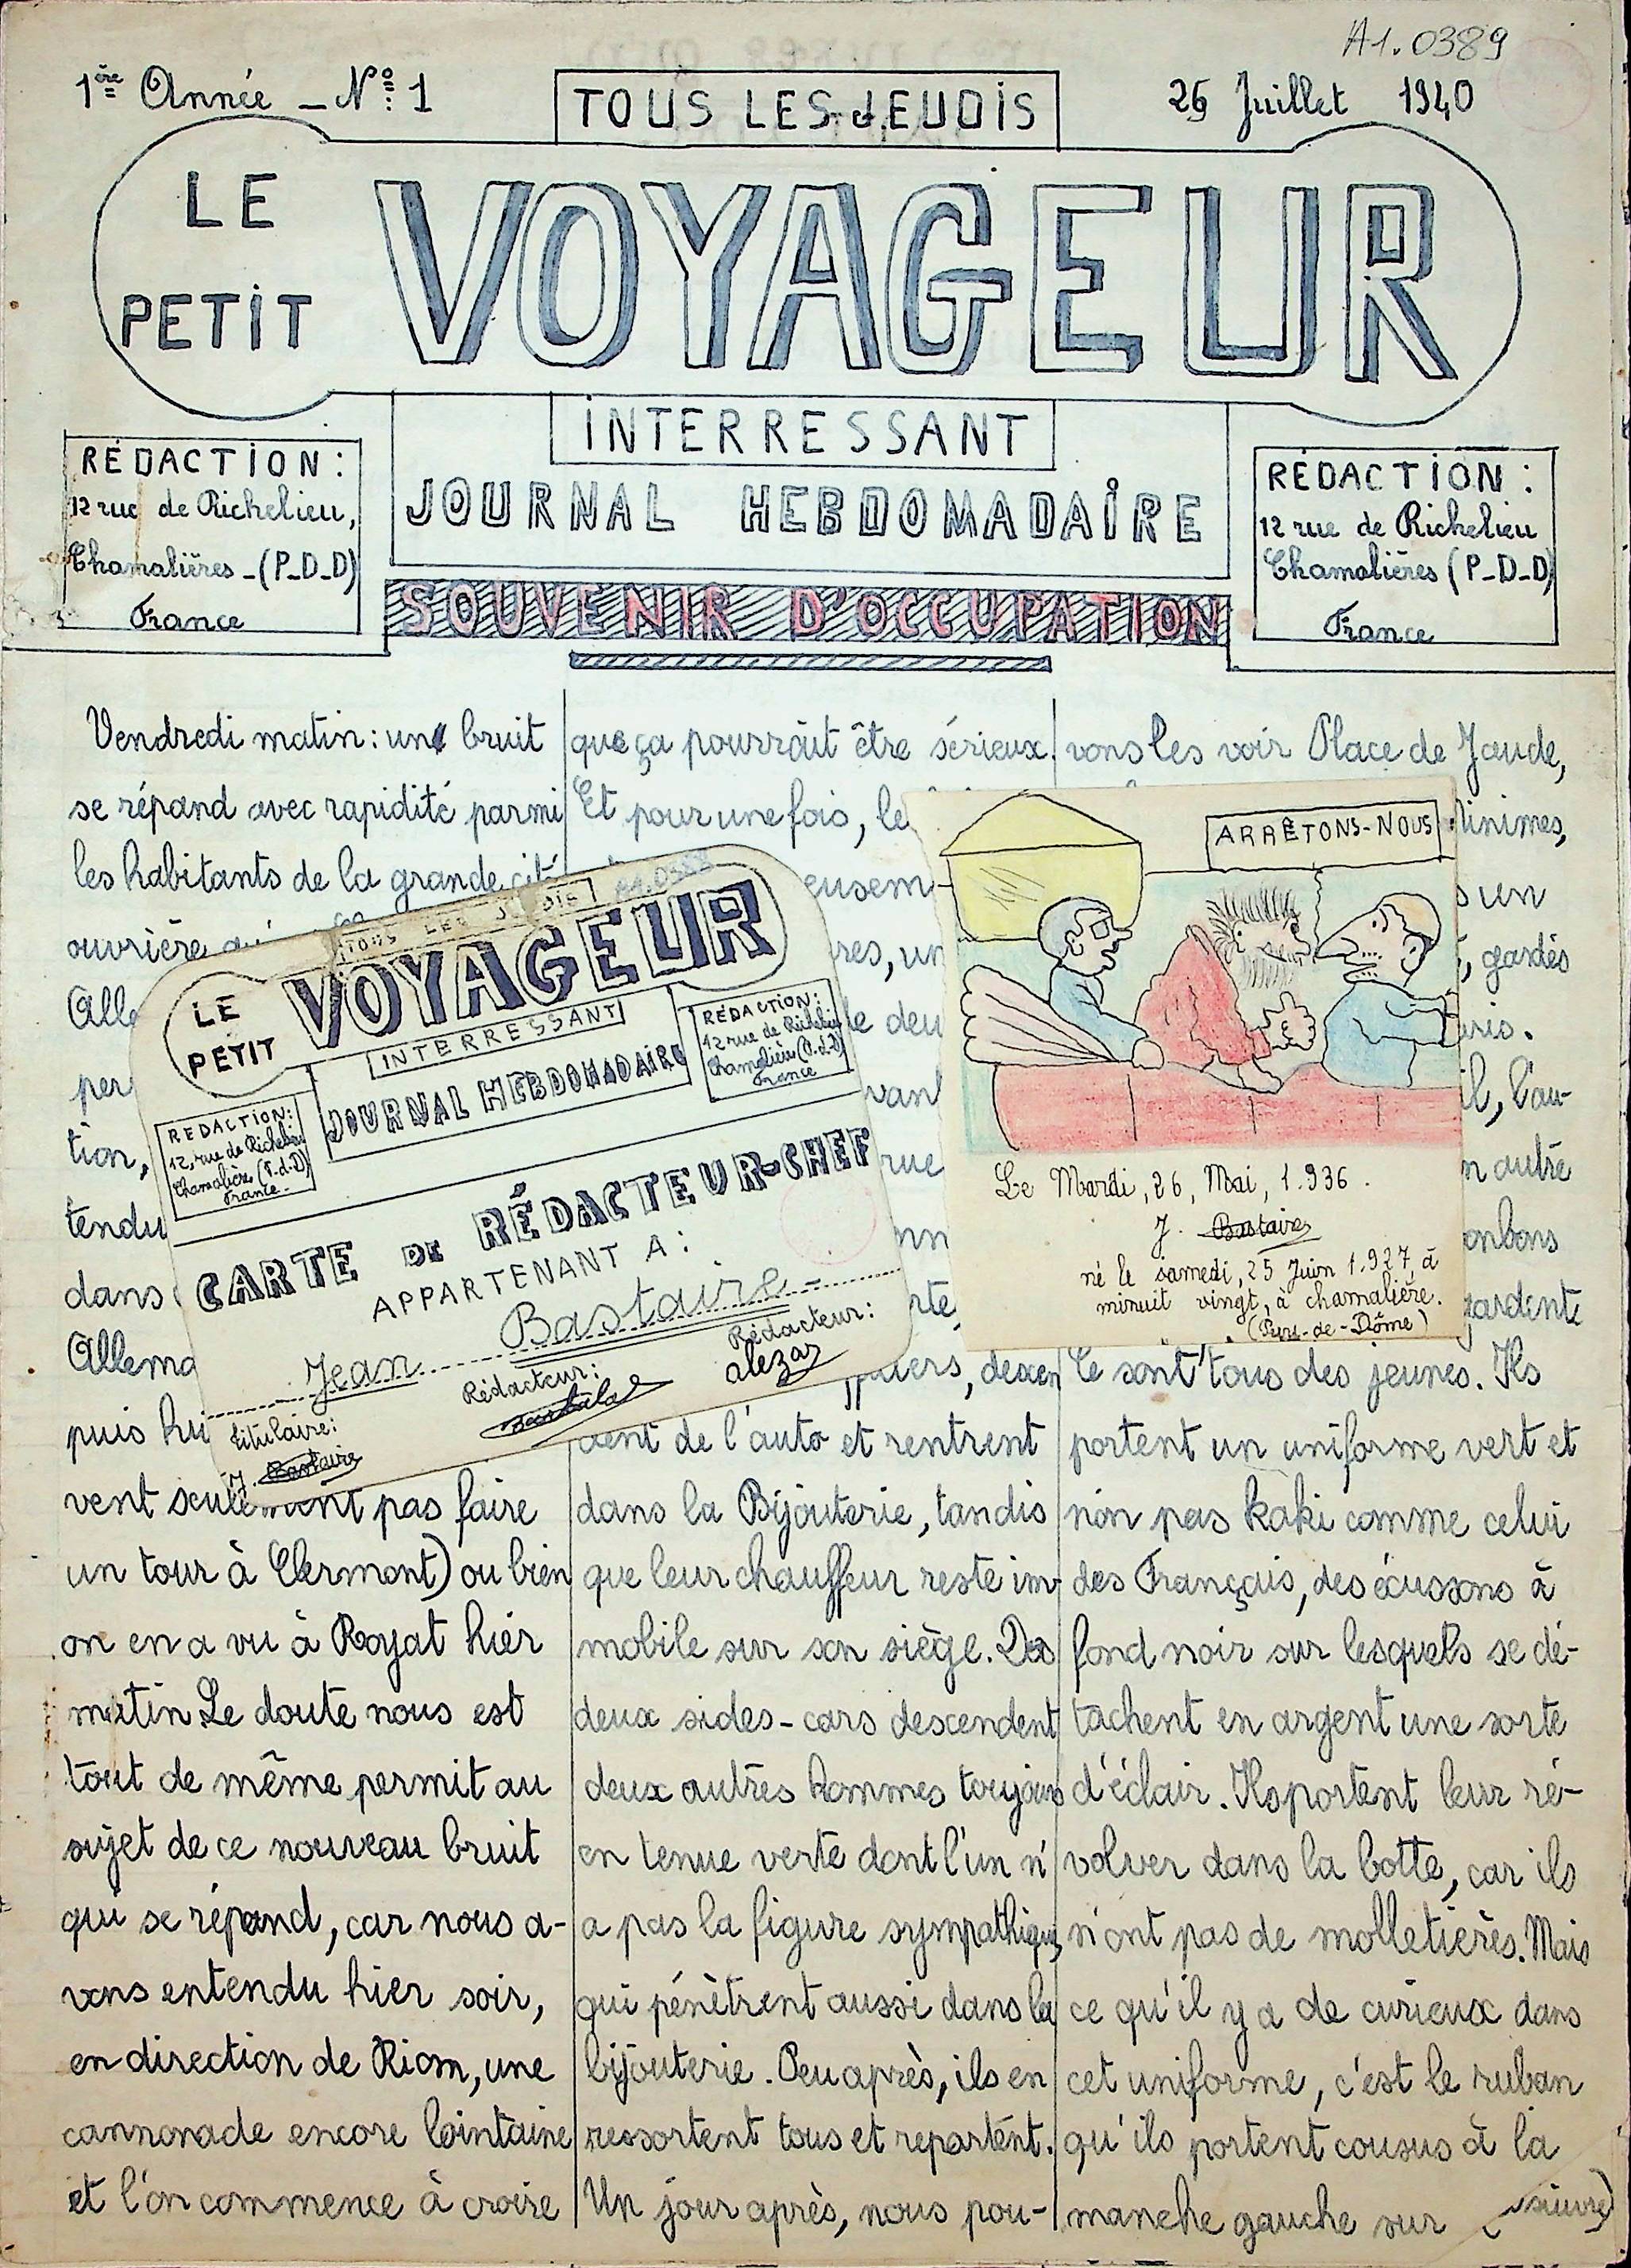 A1.0389
1ère Année - N°: 1
TOUS LES JEUDIS
25 Juillet 1940
LE PETIT VOYAGEUR
INTERRESSANT
JOURNAL HEBDOMADAIRE
SOUVENIR D'OCCUPATION
RÉDACTION:
12 rue de Richelieu,
Chamalières - (P-D-D)
France
RÉDACTION:
12 rue de Richelieu
Chamalières (P-D-D)
France
Vendredi matin: un bruit
se répand avec rapidité parmi
les habitants de la grande cité
ouvrière
Alle
per
tion,
tendu
dans
Allema
puis hui
vent seulement pas faire
un tour à Clermont) ou bien
on en a vu à Royat hier
matin. Le doute nous est
tout de même permit au
sujet de ce nouveau bruit
qui se répand, car nous a-
vons entendu hier soir,
en direction de Riom, une
cannonade encore lointaine
et l'on commence à croire
que ça pourrait être sérieux.
Et pour une fois, le
eusem
res, un
le deu
van
rue
nn
rte,
iers, descen
dent de l'auto et rentrent
dans la Bijouterie, tandis
que leur chauffeur reste im-
mobile sur son siège. Des
deux sides-cars descendent
deux autres hommes toujours
en tenue verte dont l'un n'
a pas la figure sympathique,
qui pénètrent aussi dans la
bijouterie. Peu après, ils en
ressortent tous et repartent.
Un jour après, nous pou-
vons les voir Place de Jaude,
Minimes,
s un
, gardés
uris.
il, l'au-
n autre
onbons
gardent
Ce sont tous des jeunes. Ils
portent un uniforme vert et
non pas kaki comme celui
des Français, des écussons à
fond noir sur lesquels se dé-
tachent en argent une sorte
d'éclair. Ils portent leur ré-
volver dans la botte, car ils
n'ont pas de molletières. Mais
ce qu'il y a de curieux dans
cet uniforme, c'est le ruban
qu'ils portent cousus à la
manche gauche sur (à suivre)
TOUS LES JEUDIS
A1.0388
LE PETIT VOYAGEUR
INTERRESSANT
JOURNAL HEBDOMADAIRE
RÉDACTION:
12 rue de Richelieu
Chamalières (P.d.D)
France
RÉDACTION:
12, rue de Richelieu
Chamalières (P.d.D)
France -
CARTE DE RÉDACTEUR-CHEF
APPARTENANT A:
Jean Bastaire
titulaire:
J. Bastaire
Rédacteur:
Rédacteur:
alezar
ARRÊTONS-NOUS
Le Mardi, 26, Mai, 1.936.
J. Bastaire
né le samedi, 25 Juin 1.927, à
minuit vingt, à chamalière.
(Puy-de-Dôme)